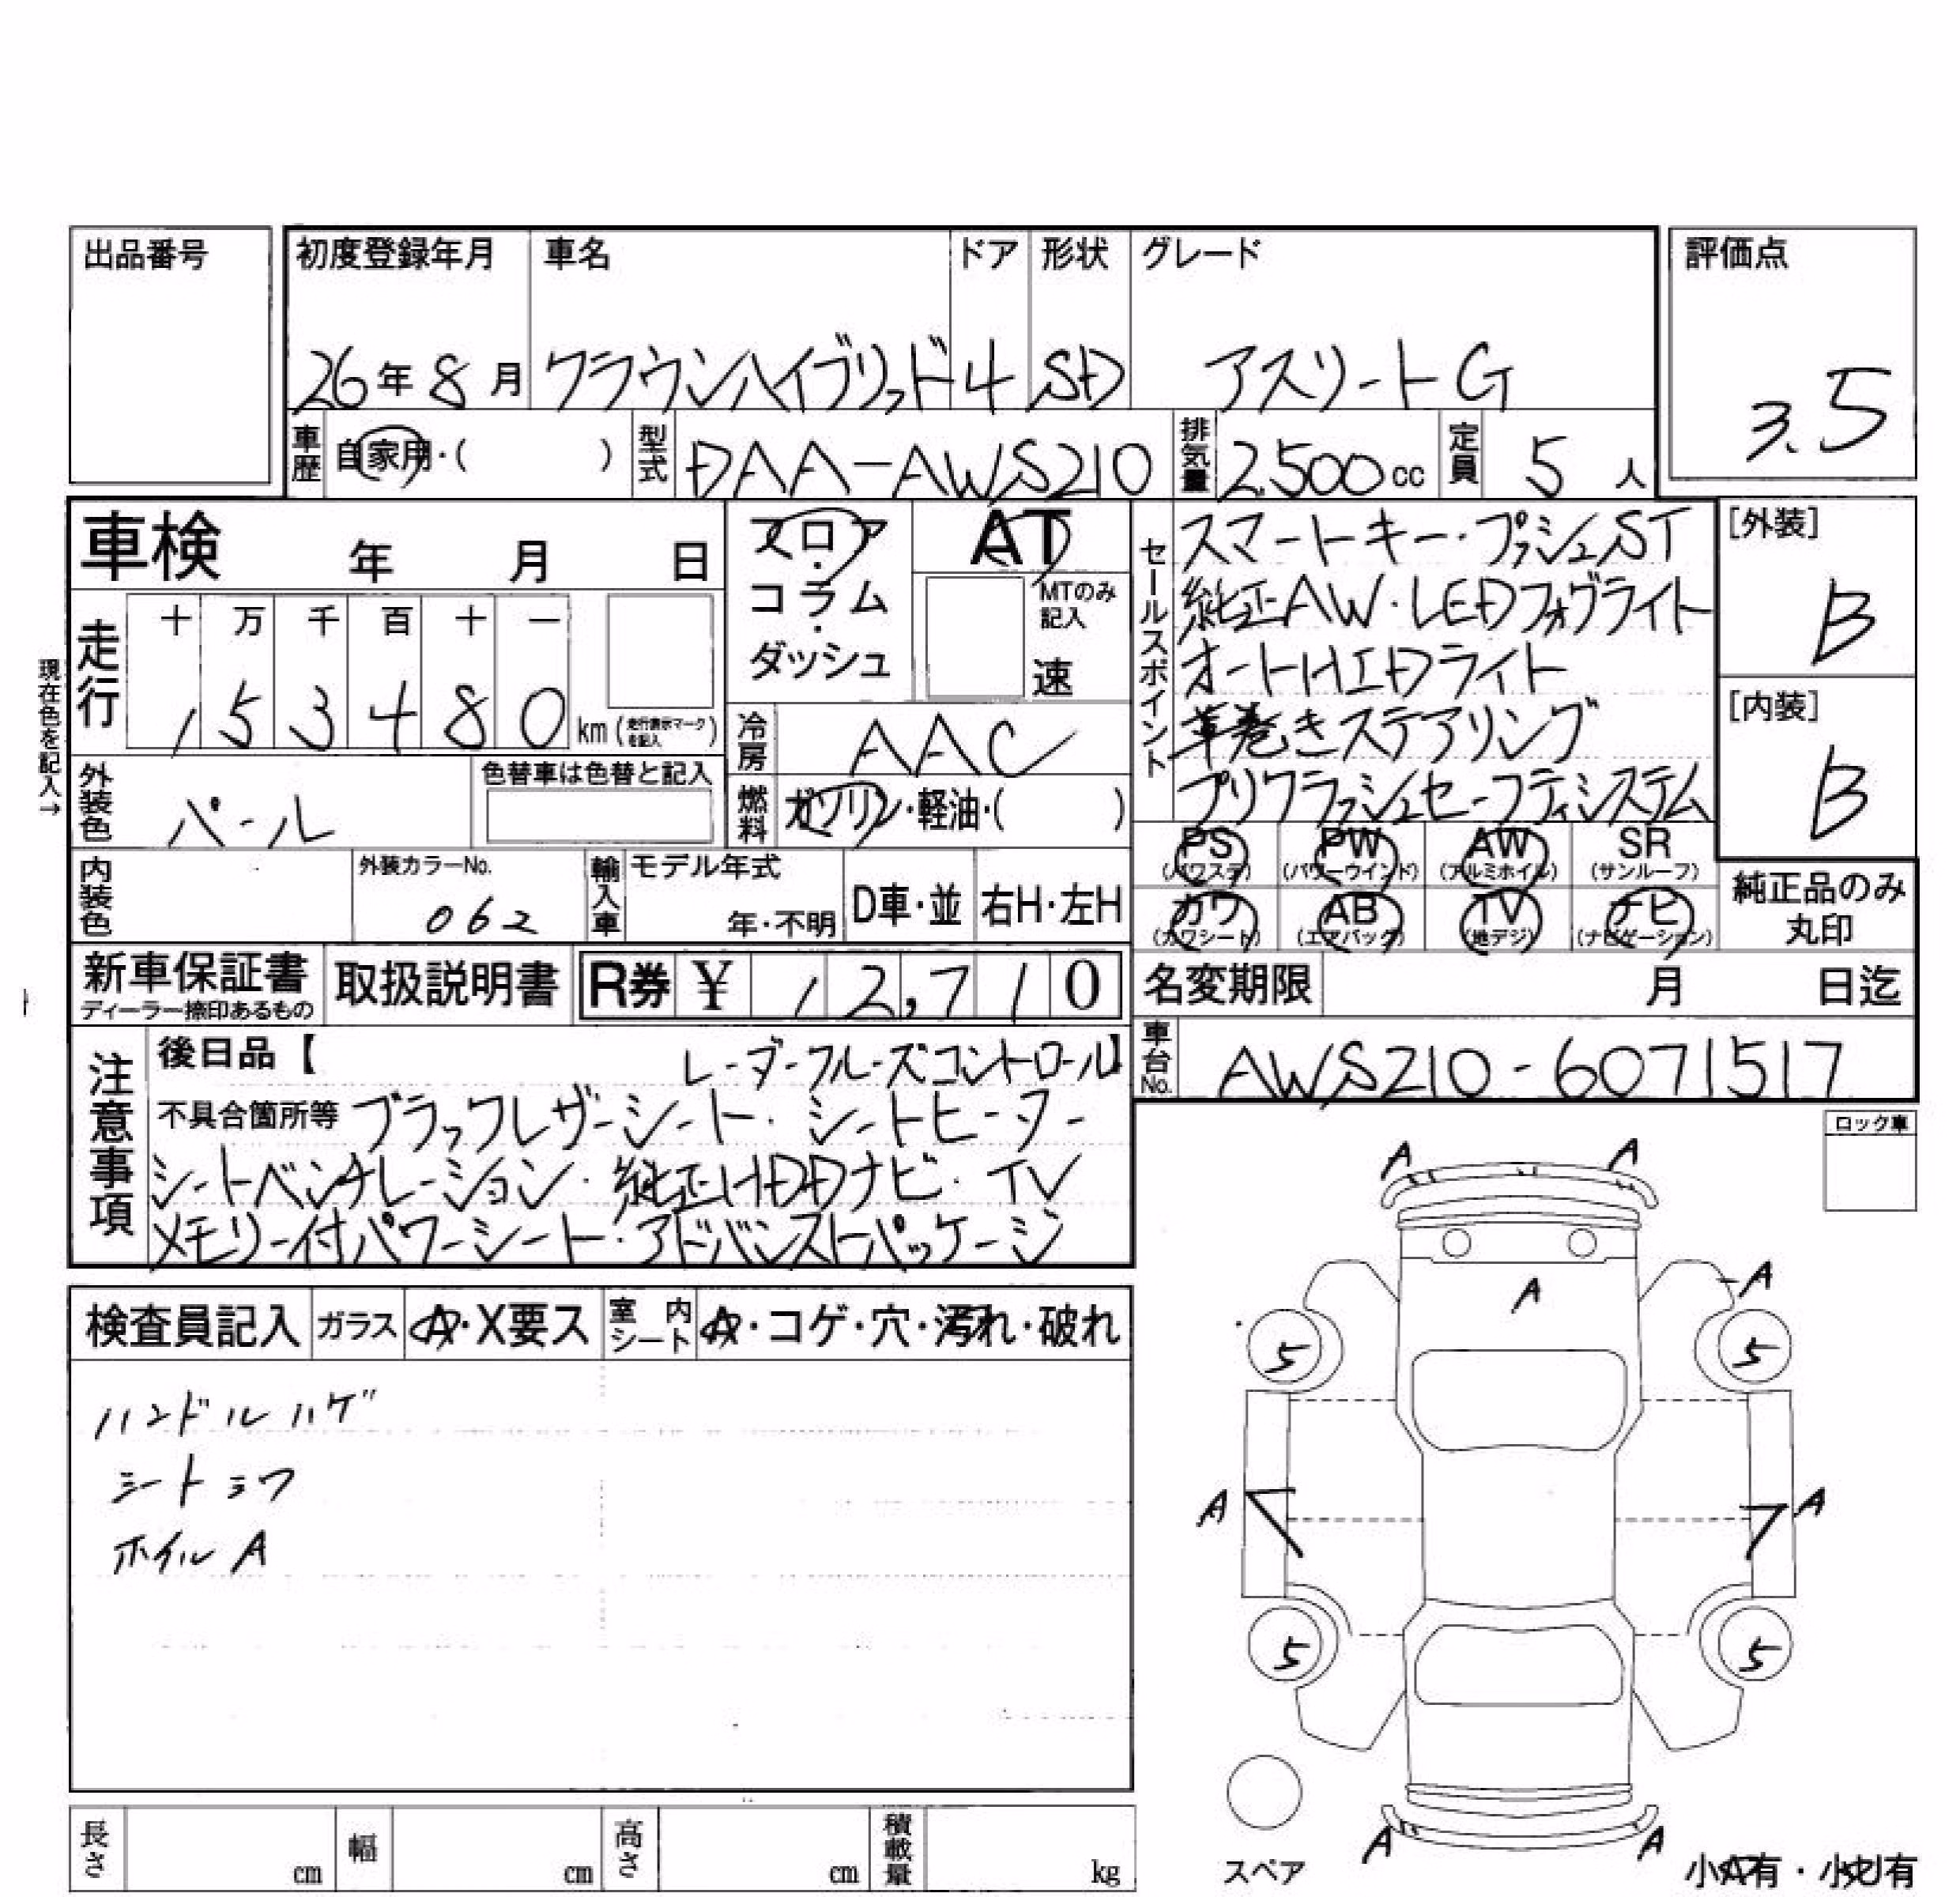 出品番号
初度登録年月 車名 ドア 形状 グレード
評価点
26年8月 クラウンハイブリッド 4 SD アスリートG
3.5
車歴 自家用・( ) 型式 DAA-AWS210 排気量 2,500cc 定員 5人
車検 年 月 日
フロア・コラム・ダッシュ
AT
MTのみ記入
速
セールスポイント
スマートキー・プッシュST
純正AW・LEDフォグライト
オートHIDライト
革巻きステアリング
プリクラッシュセーフティシステム
[外装]
B
[内装]
B
現在色を記入→
走行 十 万 千 百 十 一
153480 km (走行表示マークを記入)
冷房 AAC
外装色 パール 色替車は色替と記入
燃料 ガソリン・軽油・( )
PS (パワステ) PW (パワーウインド) AW (アルミホイル) SR (サンルーフ)
カワ (カワシート) AB (エアバッグ) TV (地デジ) ナビ (ナビゲーション)
純正品のみ丸印
内装色 外装カラーNo. 062 輸入車 モデル年式 年・不明 D車・並 右H・左H
新車保証書 ディーラー捺印あるもの 取扱説明書 R券 ¥ 12,710
名変期限 月 日迄
車台No. AWS210-6071517
注意事項
後日品【 レーダークルーズコントロール】
不具合箇所等 ブラックレザーシート・シートヒーター
シートベンチレーション・純正HDDナビ・TV
メモリー付パワーシート・アドバンストパッケージ
ロック車
検査員記入 ガラス A・X要ス 室内シート A・コゲ・穴・汚れ・破れ
ハンドルハゲ
シートシワ
ホイルA
A A
A
A
5 5
A A
5 5
A A
スペア
小A有・小凹有
長さ cm 幅 cm 高さ cm 積載量 kg